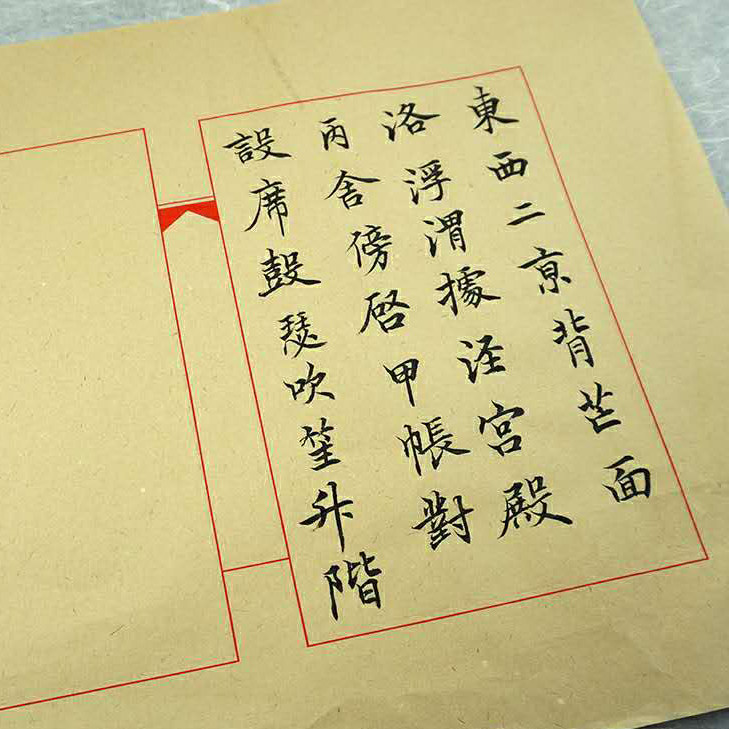 東西二亰背芒面
洛浮渭據泾宫殿
丙舍傍啓甲帳對
設席鼓瑟吹笙升階